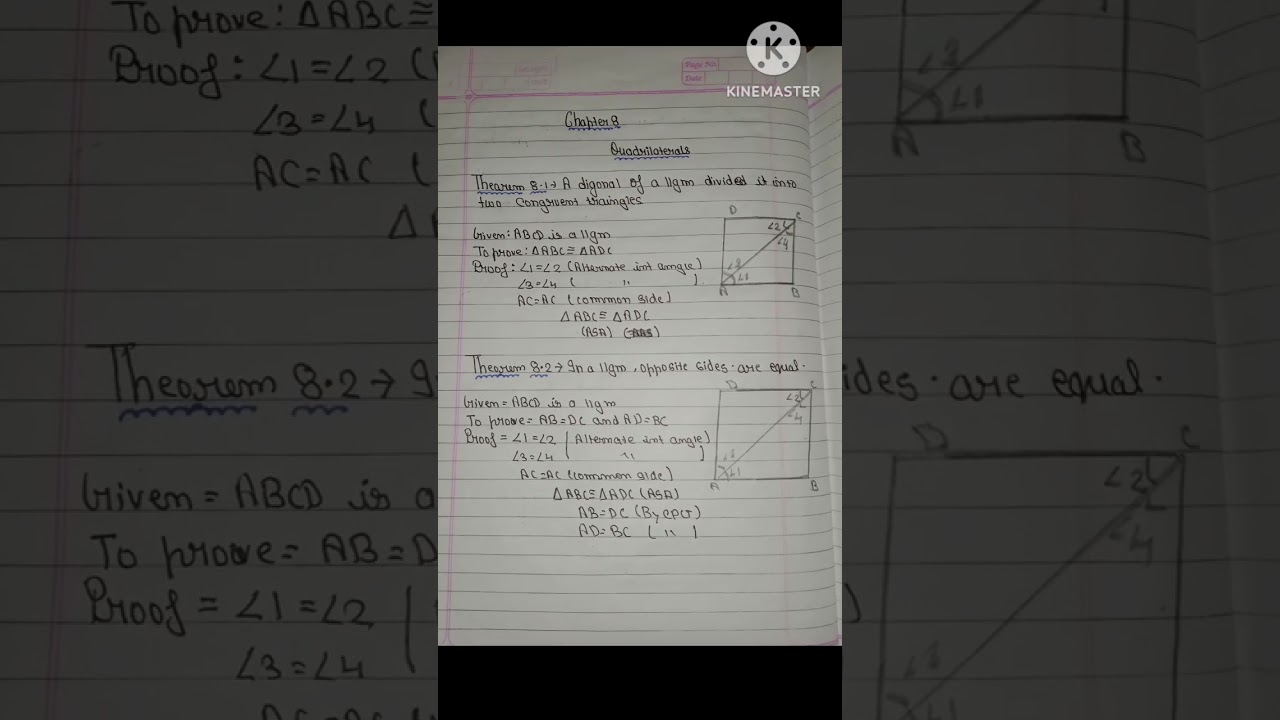 KINEMASTER
Page No.
Date
Chapter 8
Quadrilaterals
Thearum 8.1→ A digonal of a llgm divided it into
two congruent traingles
Given: ABCD is a llgm
To prove: ΔABC ≅ ΔADC
Proof: ∠1=∠2 (Alternate int angle)
∠3=∠4 ( '' )
AC=AC (common side)
Δ ABC ≅ ΔADC
(ASA)
D C
∠2
∠4
∠3
∠1
A B
Thearum 8.2→ In a llgm, opposite sides are equal.
Given = ABCD is a llgm
To prove= AB=DC and AD=BC
Proof = ∠1=∠2 (Alternate int angle)
∠3=∠4 ( '' )
AC=AC (common side)
ΔABC≅ΔADC (ASA)
AB=DC (By CPCT)
AD=BC ( '' )
D C
∠2
∠4
∠3
∠1
A B